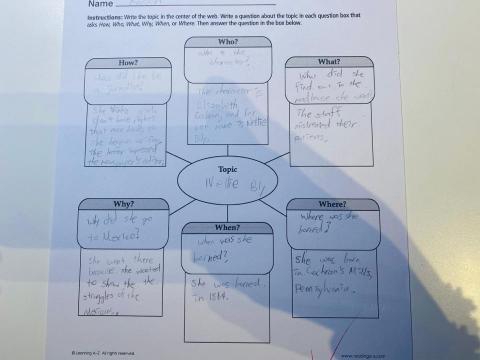 Name
Instructions: Write the topic in the center of the web. Write a question about the topic in each question box that
asks How, Who, What, Why, When, or Where. Then answer the question in the box below.
Who?
who is the
character?
The character is
Elizabeth
and her
name is Nellie
Bly.
How?
How did she be
a journalist?
She girls
don't have rights
that
she began writing
the letter
the newspaper's editor.
What?
What did she
find out in the
madhouse she
The staff
mistreated their
patients.
Topic
Nellie Bly
Why?
Why did she go
to Mexico?
She went there
because she wanted
to show the the
struggles of the
When?
when was she
borned?
She was borned
in 1864.
Where?
Where was she
borned?
She was born
in Cochran's Mills,
Pennsylvania.
© Learning A–Z All rights reserved.
www.readinga-z.com